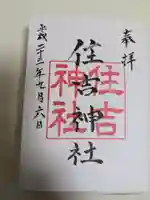 奉拝
住吉神社
住吉神社
平成二十三年七月六日